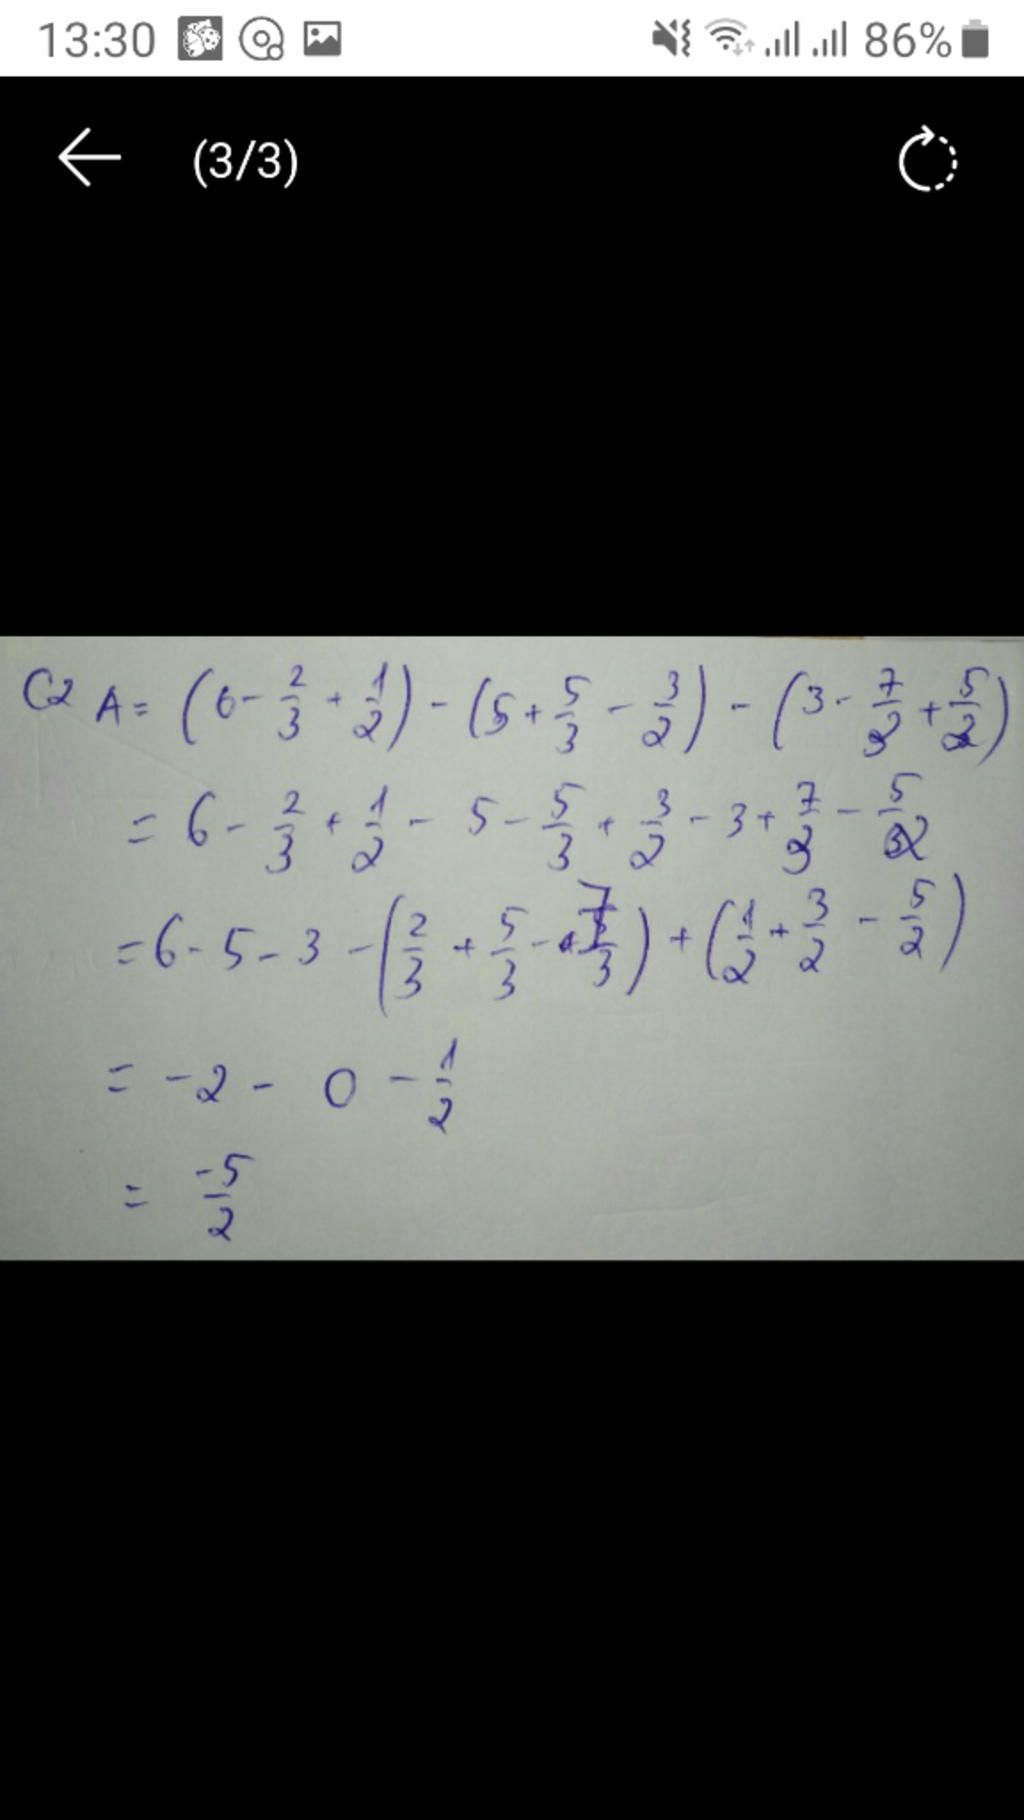 13:30 86%
(3/3)
C2 A = (6 - 2/3 + 1/2) - (5 + 5/3 - 3/2) - (3 - 7/3 + 5/2)
= 6 - 2/3 + 1/2 - 5 - 5/3 + 3/2 - 3 + 7/3 - 5/2
= 6 - 5 - 3 - (2/3 + 5/3 - 7/3) + (1/2 + 3/2 - 5/2)
= -2 - 0 - 1/2
= -5/2